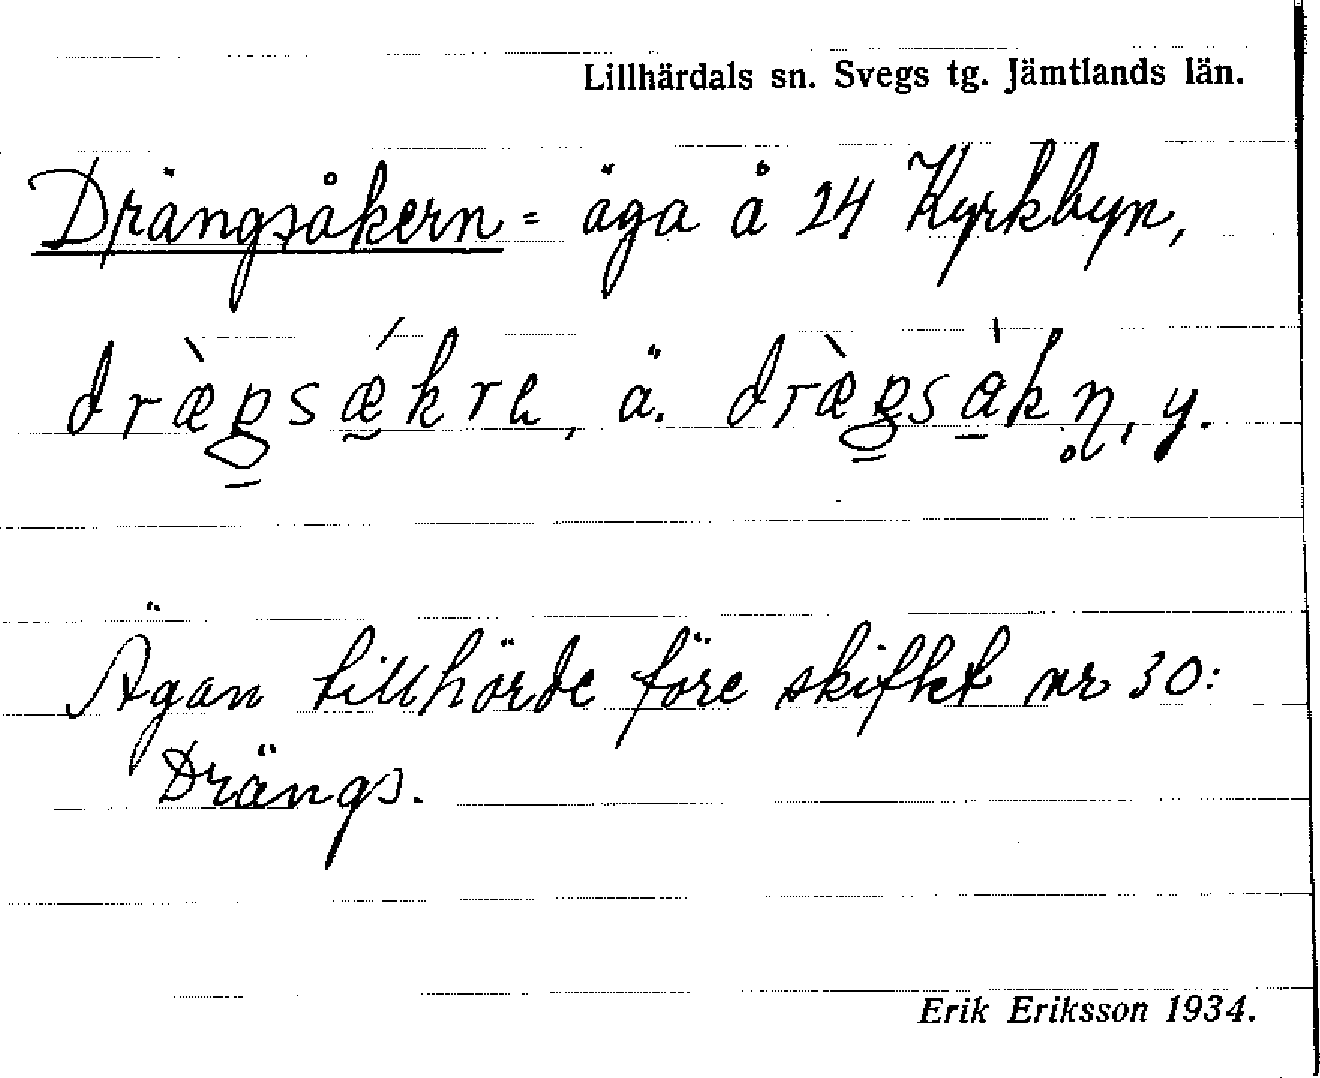 Lillhärdals sn. Svegs tg. Jämtlands län.
Drängsåkern = äga å 24 Kyrkbyn,
ä. y.
Ägan tillhörde före skiftet nr 30:
Drängs.
Erik Eriksson 1934.